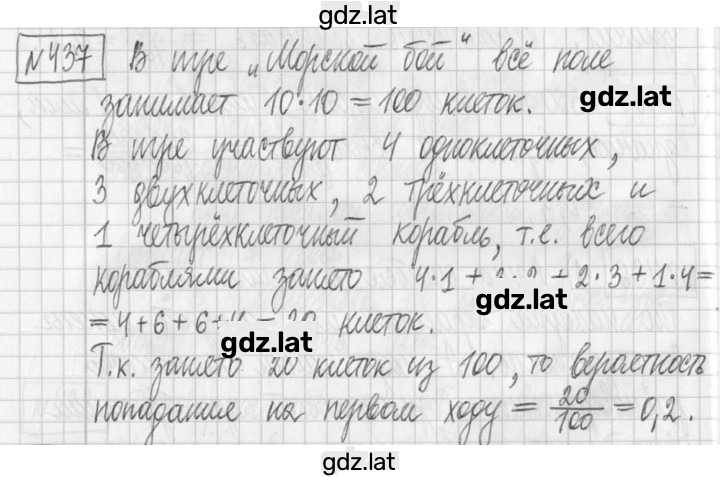 gdz.lat
№437 В игре „Морской бой" всё поле
занимает 10·10 = 100 клеток.
gdz.lat
В игре участвуют 4 одноклеточных,
3 двухклеточных, 2 трёхклеточных и
1 четырёхклеточный корабль, т.е. всего
кораблями занято 4·1 + 3·2 + 2·3 + 1·4 =
gdz.lat
= 4+6+6+4 = 20 клеток.
gdz.lat
Т.к. занято 20 клеток из 100, то вероятность
попадания на первом ходу = 20/100 = 0,2.
gdz.lat